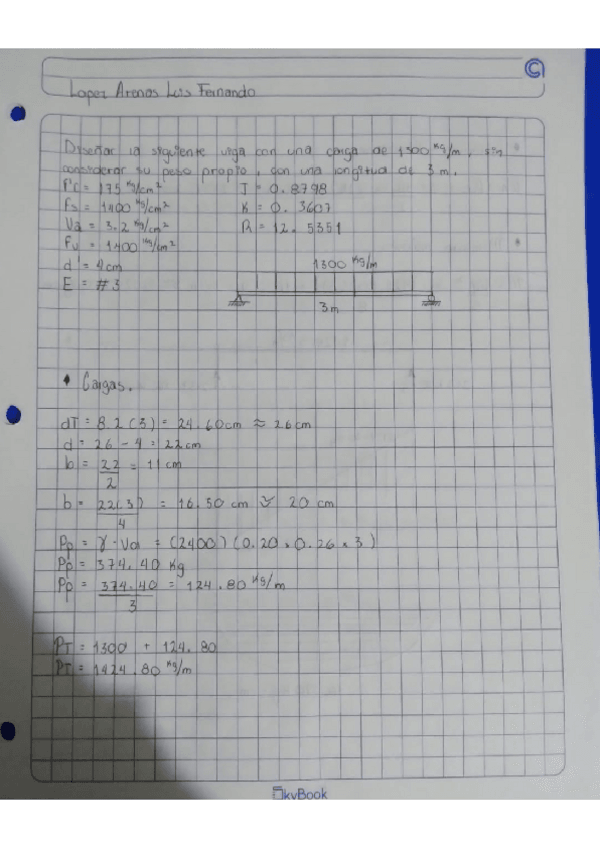 Lopez Arenas Luis Fernando
Diseñar la siguiente viga con una carga de 1300 Kg/m, sin
considerar su peso propio, con una longitud de 3 m.
F'c = 175 Kg/cm² J = 0.8798
Fs = 1400 Kg/cm² K = 0.3607
Va = 3.2 Kg/cm² R = 12.5351
Fv = 1400 Kg/cm²
d' = 4cm 1300 Kg/m
E = #3
3m
• Cargas.
dT = 8.2(3) = 24.60cm ≈ 26cm
d = 26 - 4 = 22cm
b = 22/2 = 11cm
b = 22(3)/4 = 16.50 cm ≈ 20 cm
Pp = γ · Vol = (2400)(0.20 x 0.26 x 3)
Pp = 374.40 Kg
Pp = 374.40/3 = 124.80 Kg/m
PT = 1300 + 124.80
PT = 1424.80 Kg/m
SkyBook